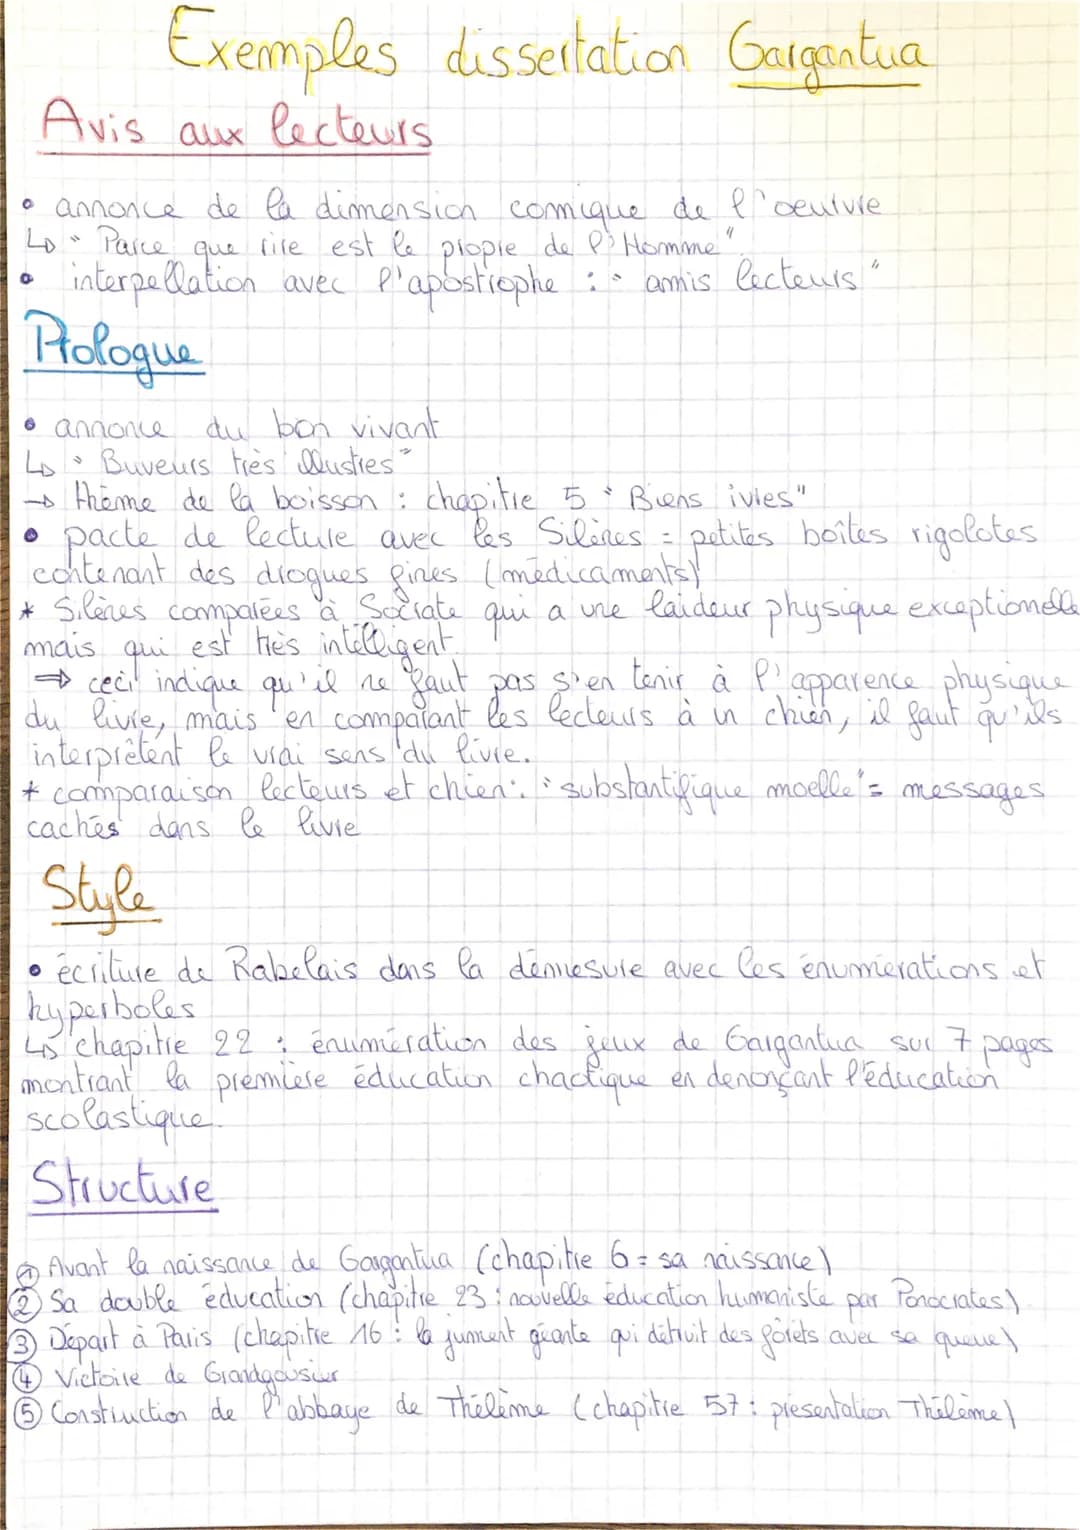 Exemples dissertation Gargantua
Avis aux lecteurs
• annonce de la dimension comique de l'oeuvre
↳ "Parce que rire est le propre de l'Homme".
• interpellation avec l'apostrophe : "amis lecteurs"
Prologue
• annonce du bon vivant
↳ "Buveurs très illustres"
→ thème de la boisson : chapitre 5 "Biens ivres"
• pacte de lecture avec les Silènes = petites boîtes rigolotes
contenant des drogues fines (médicaments)
* Silènes comparées à Socrate qui a une laideur physique exceptionelle
mais qui est très intelligent.
⇒ ceci indique qu'il ne faut pas s'en tenir à l'apparence physique
du livre, mais en comparant les lecteurs à un chien, il faut qu'ils
interprètent le vrai sens du livre.
* comparaison lecteurs et chien : "substantifique moelle" = messages
cachés dans le livre
Style
• écriture de Rabelais dans la démesure avec les énumérations et
hyperboles
↳ chapitre 22 : énumération des jeux de Gargantua sur 7 pages
montrant la première éducation chaotique en dénonçant l'éducation
scolastique.
Structure
① Avant la naissance de Gargantua (chapitre 6 = sa naissance)
② Sa double éducation (chapitre 23 : nouvelle éducation humaniste par Ponocrates)
③ Départ à Paris (chapitre 16 : la jument géante qui détruit des forêts avec sa queue)
④ Victoire de Grandgousier
⑤ Construction de l'abbaye de Thélème (chapitre 57 : présentation Thélème)